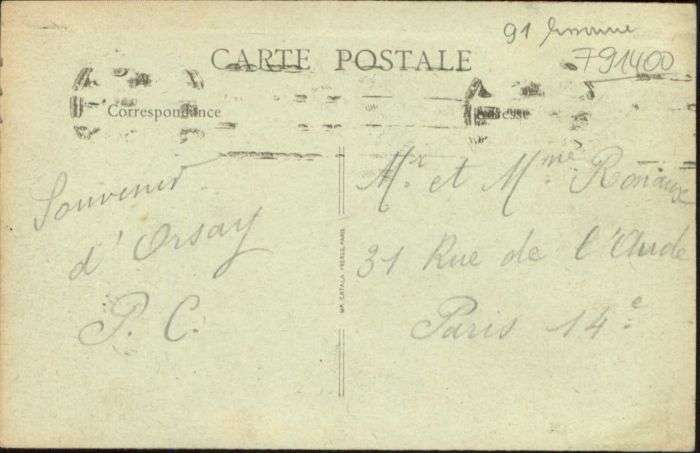 91 Essonne
791400
CARTE POSTALE
Correspondance
Adresse
Souvenir
d'Orsay
P. C.
IMP. CATALA FRÈRES, PARIS
Mr et Mme
31 Rue de l'Aude
Paris 14e